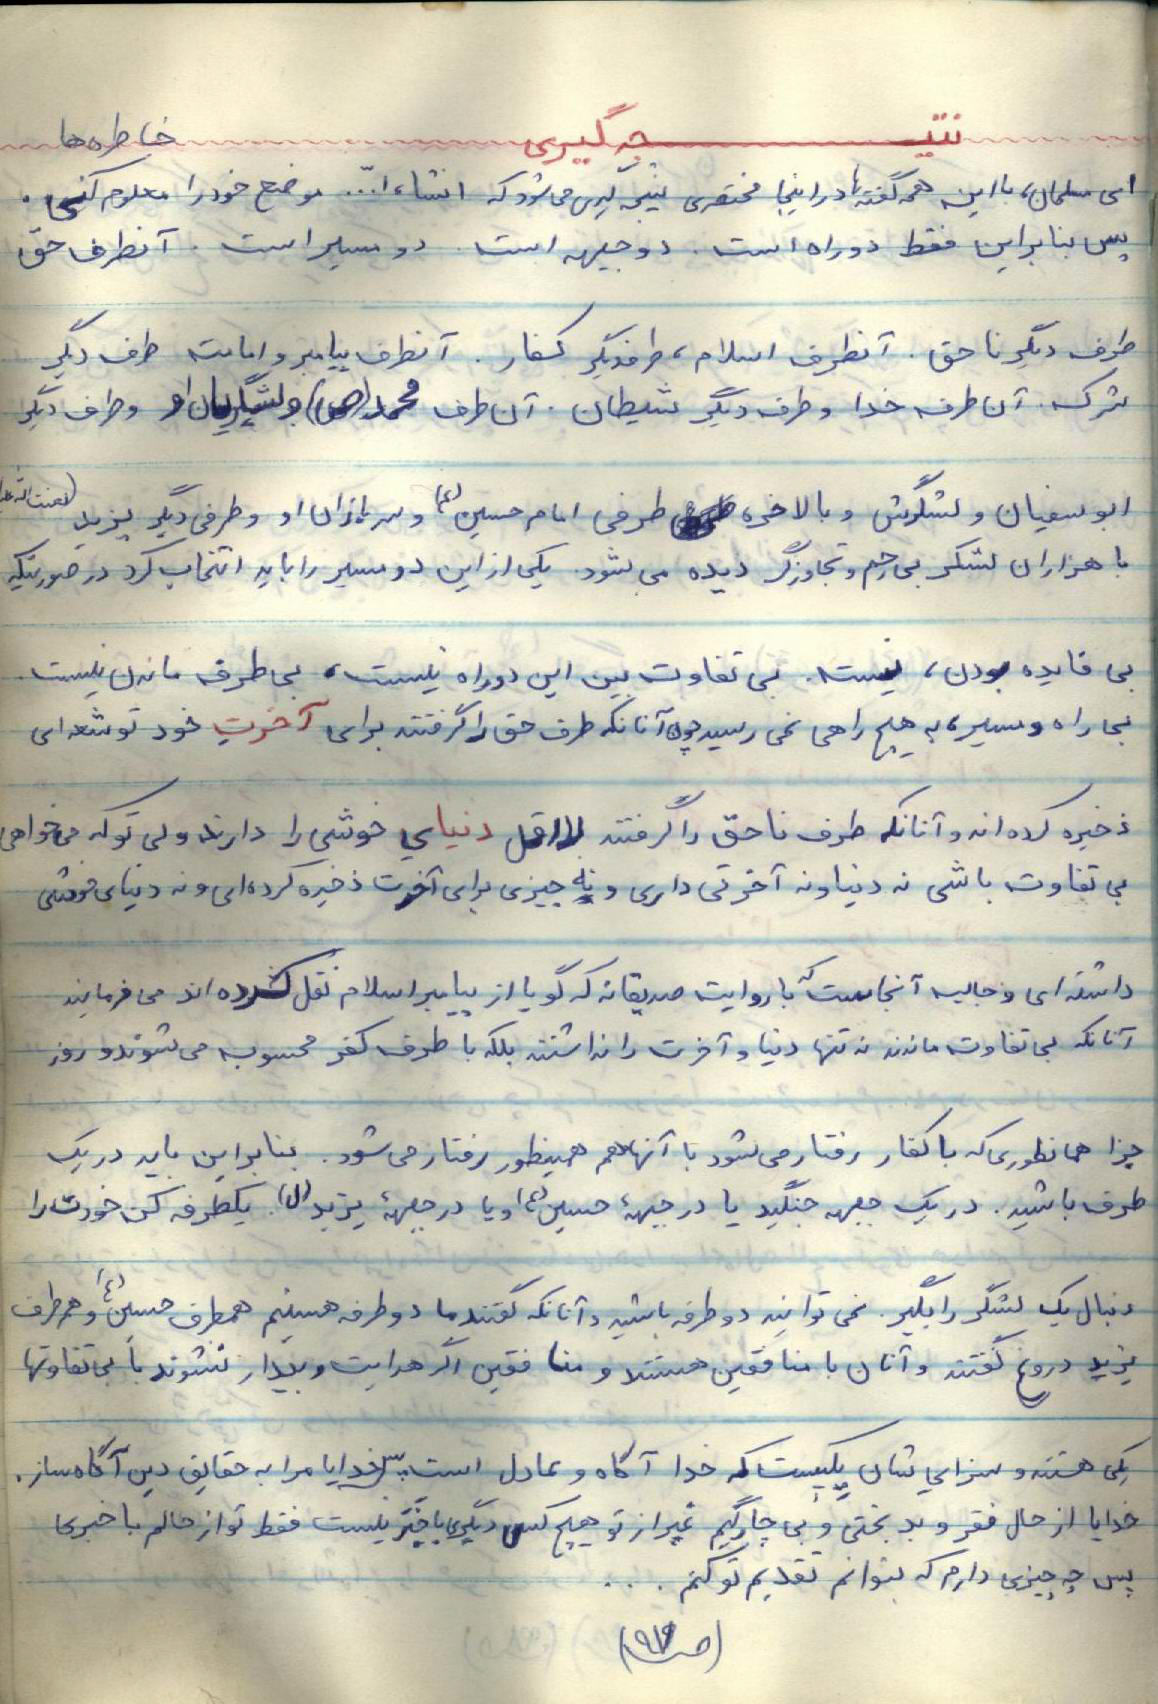 نتیـــــجه گیری
خاطره ها
ای مسلمان، با این همه گفته ها در اینجا مختصری نتیجه گیری می شود که انشاءا... موضع خود را معلوم کنی.
پس بنابراین فقط دو راه است. دو جبهه است. دو مسیر است. آنطرف حق
طرف دیگر ناحق. آنطرف اسلام، طرفدیگر کفار. آنطرف پیامبر و امامت طرف دیگر
شرک. آن طرف خدا و طرف دیگر شیطان. آن طرف محمد (ص) و لشگریان او و طرف دیگر
ابوسفیان و لشگرش و بالاخره طرفی امام حسین (ع) و سربازان او و طرفی دیگر یزید (لعنت الله علیه)
با هزاران لشکر بی رحم و تجاوزگر دیده می شود. یکی از این دو مسیر را باید انتخاب کرد در صورتیکه
بی فایده بودن، نیست. بی تفاوت بین این دو راه نیست، بی طرف ماندن نیست.
بی راه و مسیر، به هیچ راهی نمی رسید چون آنانکه طرف حق را گرفتند برای آخرت خود توشه ای
ذخیره کرده اند و آنانکه طرف ناحق را گرفتند لااقل دنیای خوشی را دارند ولی تو که می خواهی
بی تفاوت باشی نه دنیا و نه آخرتی داری و نه چیزی برای آخرت ذخیره کرده ای و نه دنیای خوشی
داشته ای و جالب آنجاست که با روایت صدیقانه که گویا از پیامبر اسلام نقل کرده اند می فرمایند
آنانکه بی تفاوت ماندند نه تنها دنیا و آخرت را نداشتند بلکه با طرف کفر محسوب می شوند و روز
جزا همانطوری که با کفار رفتار می شود با آنها هم همینطور رفتار می شود. بنابراین باید در یک
طرف باشید. در یک جبهه جنگید یا در جبههٔ حسین (ع) و یا در جبههٔ یزید (ل). یکطرفه کن خودت را
دنبال یک لشگر را بگیر. نمی توانید دو طرفه باشید و آنانکه گفتند ما دو طرفه هستیم هم طرف حسین (ع) و هم طرف
یزید دروغ گفتند و آنان با منافقین هستند و منافقین اگر هدایت و بیدار نشوند با بی تفاوتها
یکی هستند و سزای شان یکیست که خدا آگاه و عادل است پس خدایا مرا به حقایق دین آگاه ساز.
خدایا از حال فقر و بدبختی و بی چارگیم غیر از تو هیچ کس دیگری با خبر نیست فقط تو از حالم با خبری
پس چه چیزی دارم که بتوانم تقدیم تو کنم ...